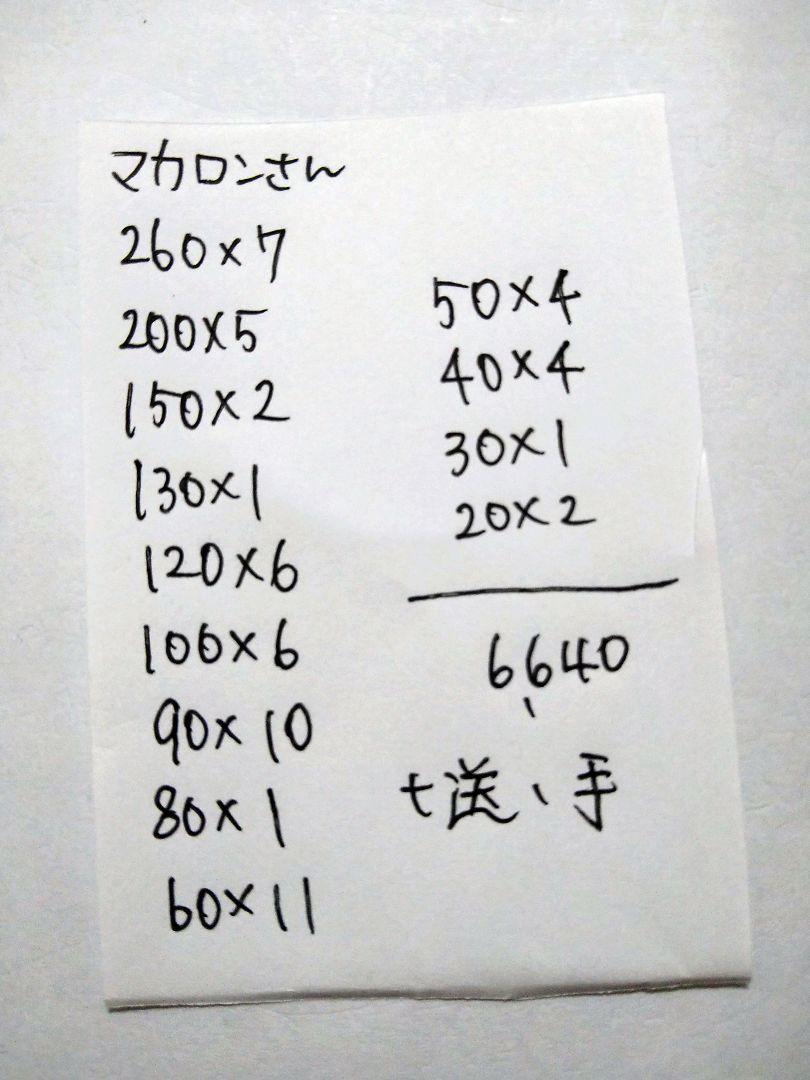 マカロンさん
260×7
200×5
150×2
130×1
120×6
100×6
90×10
80×1
60×11
50×4
40×4
30×1
20×2
6,640
+送、手